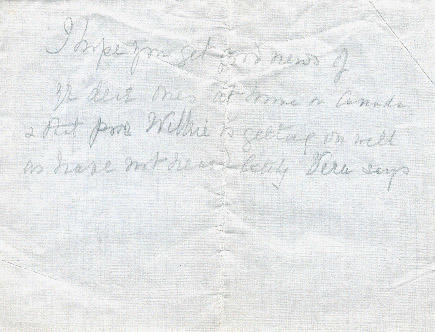 I hope you get good news of
yr dear ones at home in Canada
& that poor Willie is getting on well
as have not heard lately Vera says